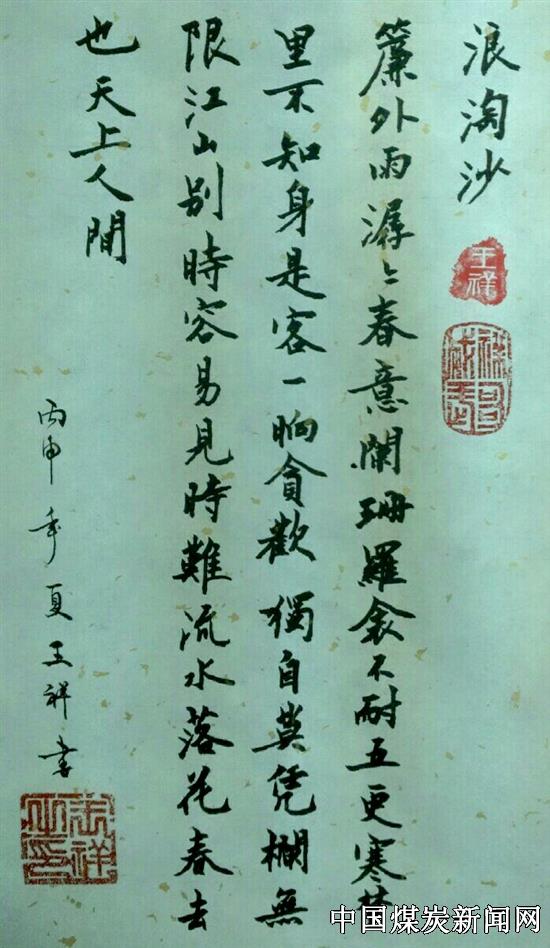 浪淘沙
王祥
簾外雨潺々春意闌珊羅衾不耐五更寒梦
里不知身是客一晌貪歡獨自莫凭欄無
限江山别時容易見時難流水落花春去
也天上人間
丙申年夏王祥書
王祥之印
中国煤炭新闻网